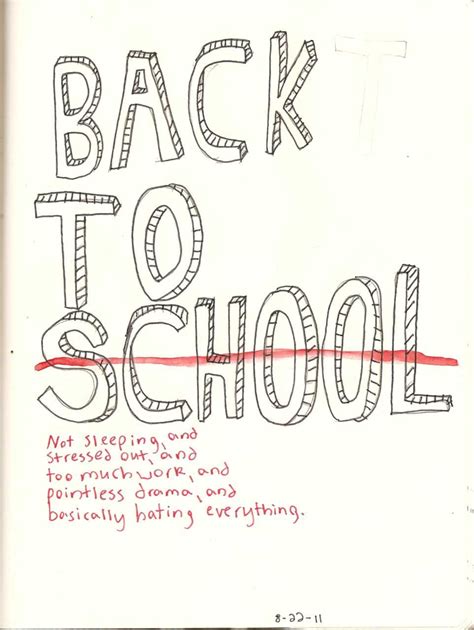 BACK T
TO
SCHOOL
Not sleeping, and
stressed out, and
too much work, and
pointless drama, and
basically hating everything.
8-22-11